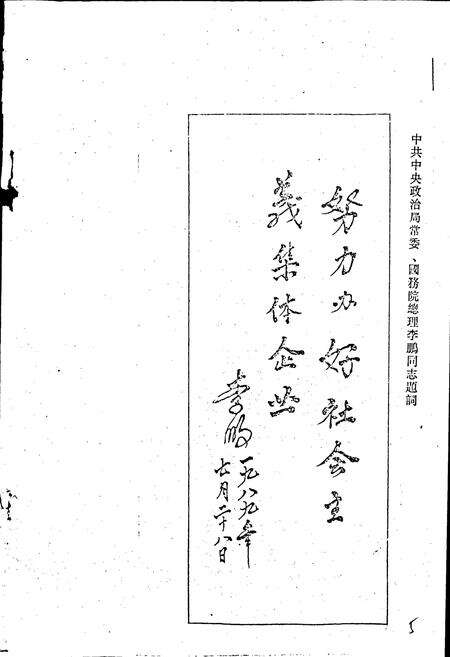 中共中央政治局常委、國務院總理李鵬同志題詞
努力办好社会主
义集体企业
李鹏
一九八九年
七月二十八日
5